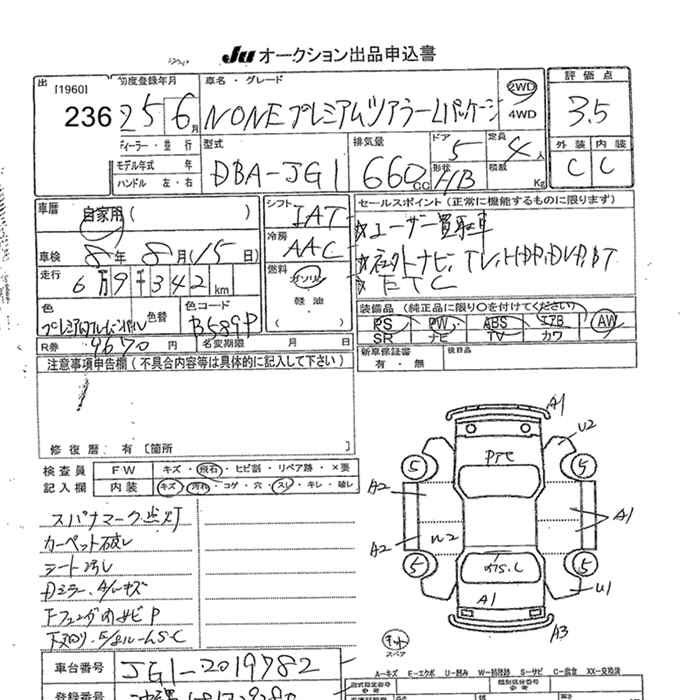 Ju オークション出品申込書
出 [1960] 236
初度登録年月 25 6月
車名・グレード NONEプレミアムツアラーLパッケージ
2WD 4WD
評価点 3.5
ディーラー・並行
モデル年式 年
ハンドル 左・右
型式 DBA-JG1
排気量 660cc
ドア 5 形状 H/B
定員 4人 積載 Kg
外装 内装
C C
車歴 自家用( )
車検 8年8月(15日)
走行 6万9千342km
色 色替 色コード B589P
シフト IAT
冷房 AAC
燃料 ガソリン
軽油
( )
セールスポイント(正常に機能するものに限ります)
☆ユーザー買取車
☆社外ナビ、TV、HDD、DVD、BT
☆ETC
装備品(純正品に限り○を付けてください)
PS PW ABS エアB AW
SR ナビ TV カワ
R券 9670円 名変期限 月 日
新車保証書 後日品
有・無
注意事項申告欄(不具合内容等は具体的に記入して下さい)
修復歴:有〔箇所 〕
検査員 FW キズ・飛石・ヒビ割・リペア跡・×要
記入欄 内装 キズ・汚れ・コゲ・穴・スレ・キレ・破レ
スパナマーク点灯
カーペット破レ
シート汚レ
Dミラー、A/キズ
A1
U2
Pre
5 5
A2 A1
A2 W2
5 5
ガラス.C
A1
U1
A3
キット
スペア
車台番号 JG1-2019782
登録番号
A=キズ E=エクボ U=凹み W=補修跡 S=サビ C=腐食 XX=交換済